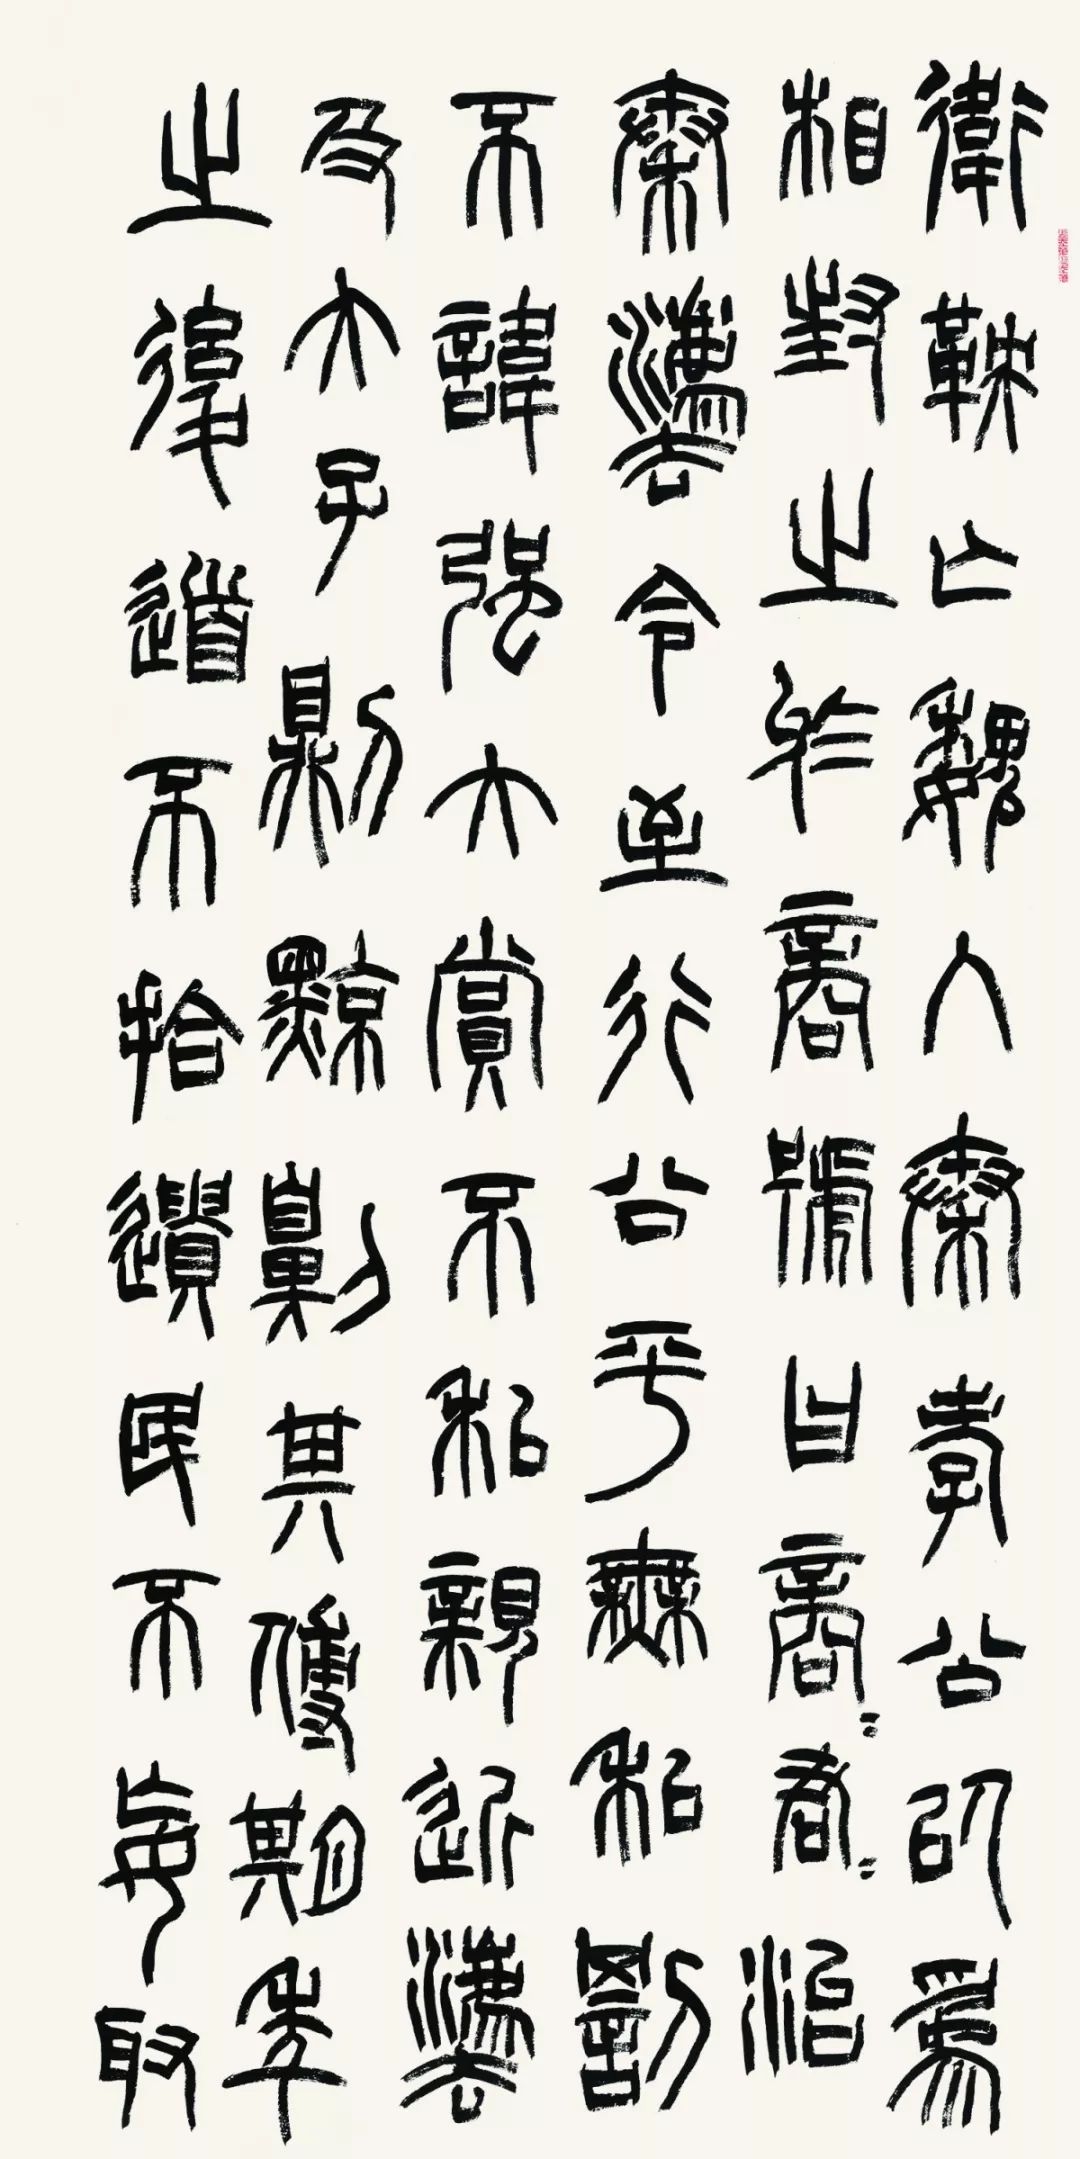 衛鞅亡魏入秦孝公以爲
相封之於商號曰商=君=治
秦灋令至行公平無私罰
不諱强大賞不私親近灋
及大子則黥劓其傅期年
之後道不拾遺民不妄取